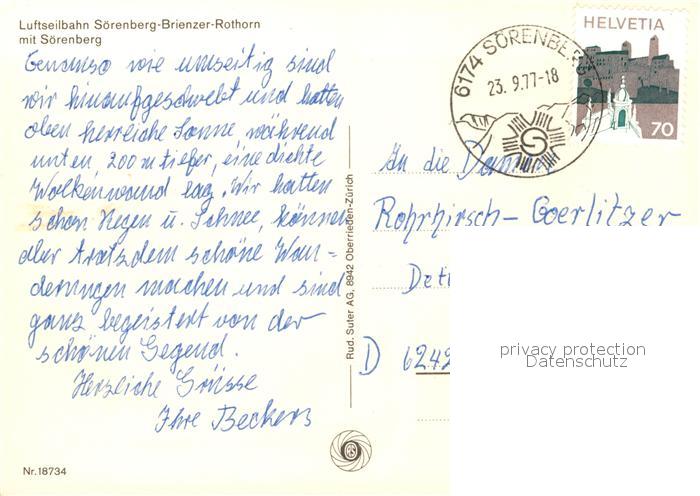 Luftseilbahn Sörenberg-Brienzer-Rothorn
mit Sörenberg
Genauso wie umseitig sind
wir hinaufgeschwebt und hatten
oben herrliche Sonne während
unten, 200 m tiefer, eine dichte
Wolkenwand lag. Wir hatten
schon Regen u. Schnee, können
aber trotzdem schöne Wan-
derungen machen und sind
ganz begeistert von der
schönen Gegend.
Herzliche Grüsse
Ihre Beckers
Nr. 18734
Rud. Suter AG, 8942 Oberrieden-Zürich
6174 SÖRENBERG
23.9.77-18
HELVETIA
70
An die Damen
Rohrhirsch-Goerlitzer
D 6242
privacy protection
Datenschutz